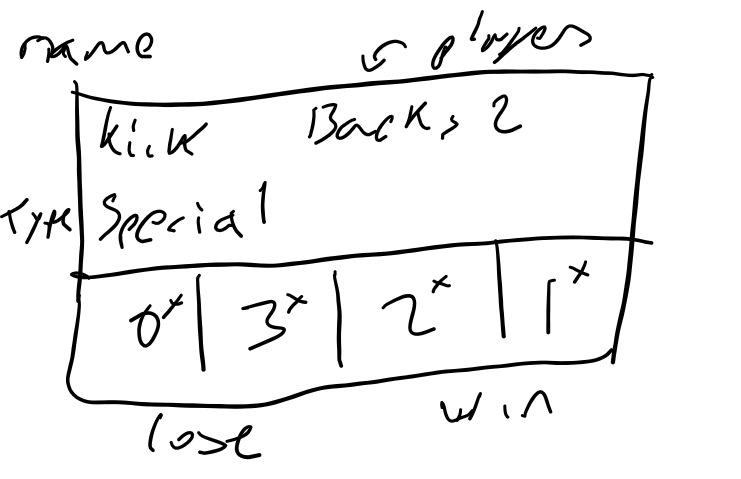 name players
Kick Backs 2
Type Special
0x 3x 2x 1x
lose win